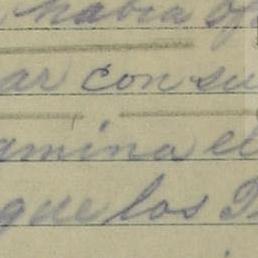 habia
ar con su
amina el
que los